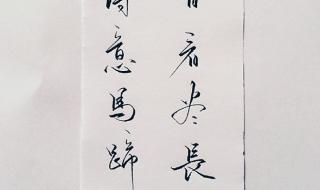 日看尽長
得意馬蹄